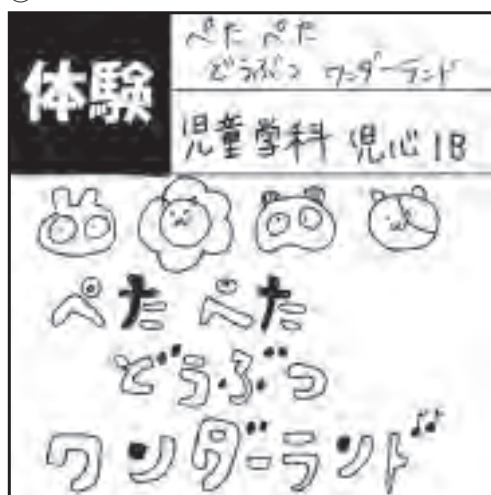 体験
ぺた ぺた
どうぶつ ワンダーランド
児童学科 児心1B
ぺた ぺた
どうぶつ
ワンダーランド